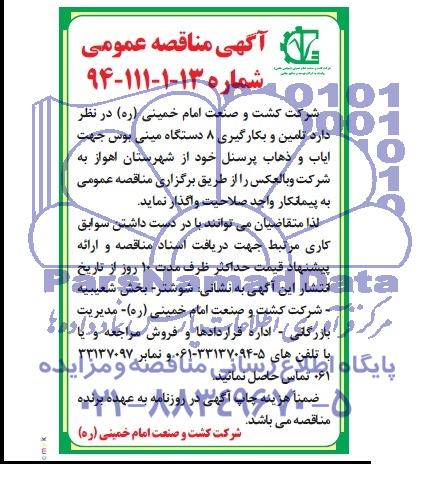 آگهی مناقصه عمومی
شماره ۱۳-۱-۱۱۱-۹۴
شرکت کشت و صنعت امام خمینی (ره) در نظر
دارد تامین و بکارگیری ۸ دستگاه مینی بوس جهت
ایاب و ذهاب پرسنل خود از شهرستان اهواز به
شرکت وبالعکس را از طریق برگزاری مناقصه عمومی
به پیمانکار واجد صلاحیت واگذار نماید.
لذا متقاضیان می توانند با در دست داشتن سوابق
کاری مرتبط جهت دریافت اسناد مناقصه و ارائه
پیشنهاد قیمت حداکثر ظرف مدت ۱۰ روز از تاریخ
انتشار این آگهی به نشانی: شوشتر- بخش شعیبیه
- شرکت کشت و صنعت امام خمینی (ره)- مدیریت
بازرگانی - اداره قراردادها و فروش مراجعه و یا
با تلفن های ۵-۳۳۱۳۷۰۹۴-۰۶۱ و نمابر ۳۳۱۳۷۰۹۷
۰۶۱ تماس حاصل نمائید.
ضمنا هزینه چاپ آگهی در روزنامه به عهده برنده
مناقصه می باشد.
شرکت کشت و صنعت امام خمینی (ره)
پایگاه اطلاع رسانی مناقصه و مزایده
۰۲۱-۸۸۳۴۹۶۷۰-۵